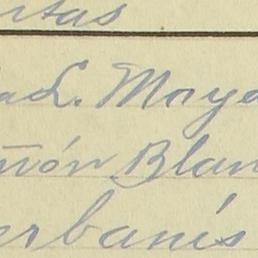 ntas
ad. Maya
món Blan
erbanís